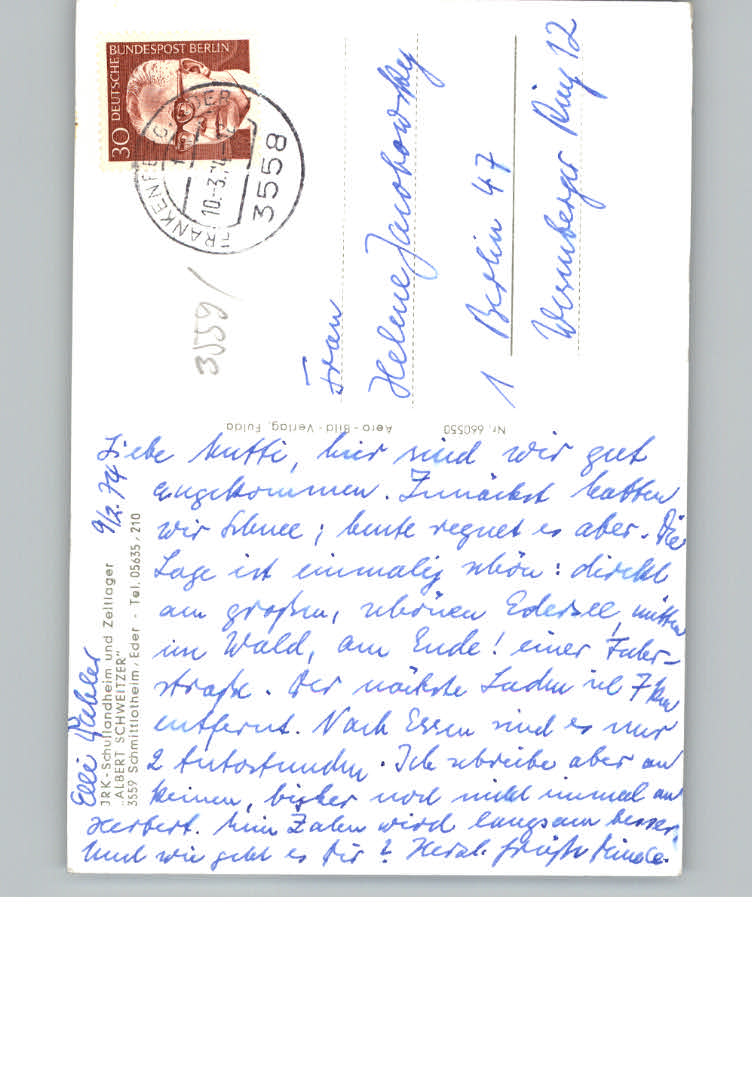 DEUTSCHE BUNDESPOST BERLIN
30
10.-3.74
3558
3559
Frau
Helene Jacobowsky
1 Berlin 47
Wermberger Ring 12
Aero-Bild-Verlag, Fulda
Nr. 660550
9/2. 74
Liebe Mutti, hier sind wir gut
angekommen. Zunächst hatten
wir Schnee; heute regnet es aber. Die
Lage ist einmalig schön: direkt
am großen, schönen Edersee, mitten
im Wald, am Ende! einer Fahr-
straße. Der nächste Laden ist 7 km
entfernt. Nach Essen sind es nur
2 Autostunden. Ich schreibe aber an
keinen, bisher noch nicht einmal an
Herbert. Mein Zahn wird langsam besser.
Und wie geht es Dir? Herzl. Grüße Deine
Elli
JRK-Schullandheim und Zeltlager
„ALBERT SCHWEITZER"
3559 Schmittlotheim/Eder - Tel. 05635/210